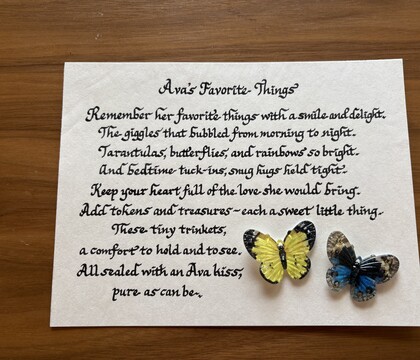 Ava's Favorite Things
Remember her favorite things with a smile and delight.
The giggles that bubbled from morning to night.
Tarantulas, butterflies, and rainbows so bright.
And bedtime tuck-ins, snug hugs held tight.
Keep your heart full of the love she would bring.
Add tokens and treasures - each a sweet little thing.
These tiny trinkets,
a comfort to hold and to see.
All sealed with an Ava kiss,
pure as can be.